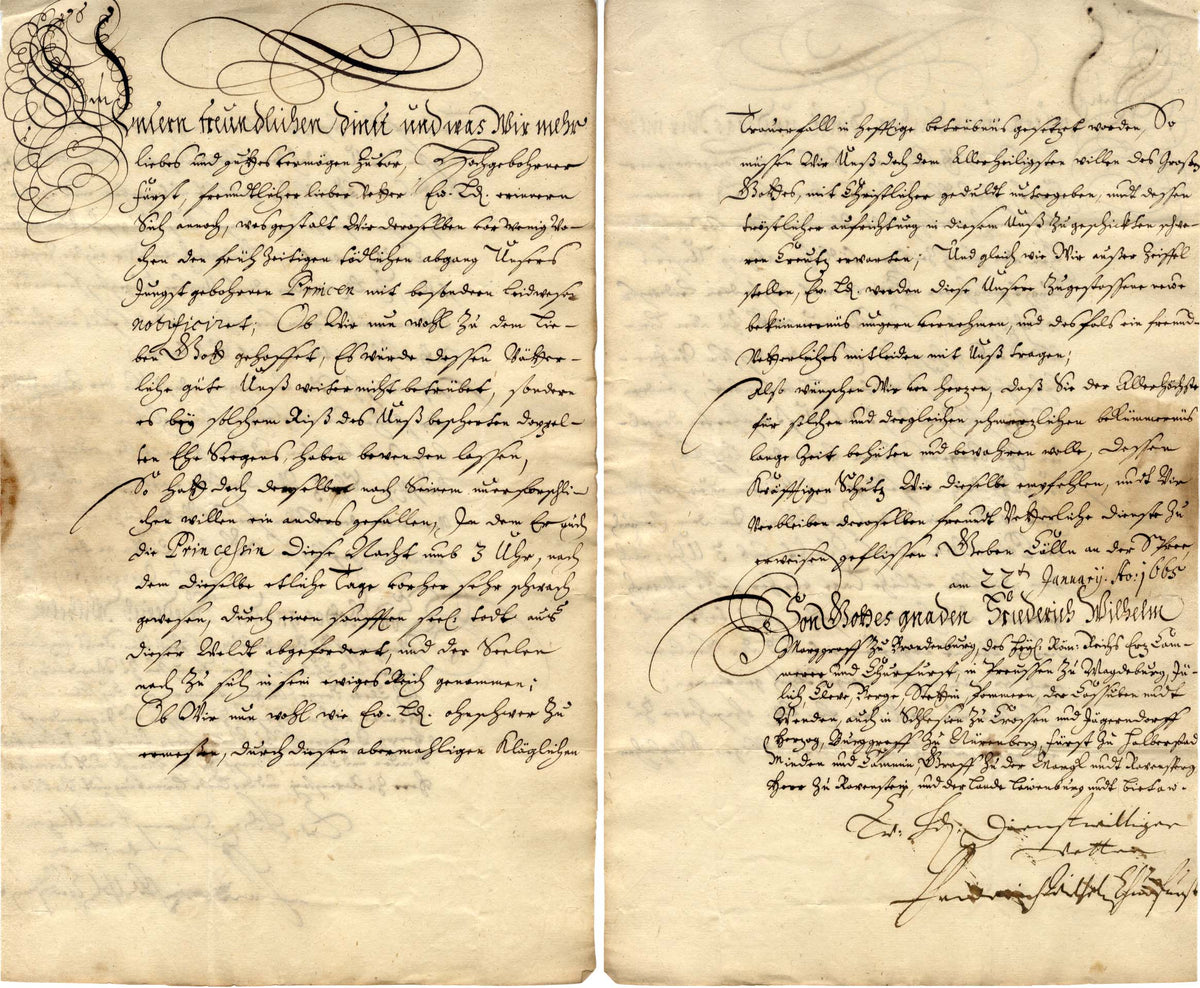 Unsern freundlichen dinst und was Wir mehr
liebes und guttes vermögen zuvor, Hochgebohrner
Fürst, freundtlicher lieber Vetter. Ew. Ld. erinnern
Sich annoch, wasgestalt Wir deroselben vor wenig Wo-
chen den frühzeitigen tödlichen abgang Unsers
Jungst gebohrnen Princen mit besondern leidwesen
notificiret; Ob Wir nun wohl zu dem Lie-
ben Gott gehoffet, Es würde dessen Vätter-
liche güte Unß weiter nicht betrübet, sondern
es bey solchem Riß des Unß bescherten doppel-
ten Ehe Seegens, haben bewenden lassen,
So hatt doch demselben nach Seinem unerforschli-
chen willen ein anders gefallen, In dem Er auch
die Princessin diese Nacht umb 3 Uhr, nach
dem dieselbe etliche Tage vorher sehr schwach
gewesen, durch einen sanfften seel. todt aus
dieser Weldt abgefordert, und der Seelen
nach zu sich in sein ewiges Reich genommen;
Ob Wir nun wohl wie Ew. Ld. ohnschwer zu
ermeßen, durch diesen abermahligen Kläglichen
Trauerfall in hefftige betrübnüs gesetzet worden, So
müssen Wir Unß doch dem Allerheiligsten willen des Großen
Gottes, mit Christlicher geduldt untergeben, undt dessen
tröstlicher aufrichtung in diesem Unß zugeschickten schwe-
ren Creutz erwarten; Und gleich wie Wir außer Zweiffel
stellen, Ew. Ld. werden diese Unsere zugestossene newe
bekümmernüs ungern vernehmen, und desfals ein freund-
Vetterliches mitleiden mit Unß tragen;
Also wünschen Wir von hertzen, daß Sie der Allerhöchste
für solchen und dergleichen schmertzlichen bekümmernüs
lange Zeit behüten und bewahren wolle, dessen
Kräfftigen Schutz Wir dieselbe empfehlen, undt Wir
verbleiben deroselben freundt Vetterliche dienste zu
erweisen geflissen. Geben Cölln an der Spree
am 22ten January. Ao: 1665
Von Gottes gnaden Friederich Wilhelm
Marggraff zu Brandenburg, des Heyl. Röm: Reichs Ertz Cäm-
merer und Churfürst, in Preussen zu Magdeburg, Jü-
lich, Cleve, Berge, Stettin, Pommern, der Cassuben undt
Wenden, auch in Schlesien zu Crossen und Jägerndorff
Herzog, Burggraff zu Nürenberg, Fürst zu Halberstad
Minden und Cammin, Graff zu der Marck undt Ravensberg
Herr zu Ravenstein, und der Lande Lawenburg undt Bütow.
Ew: Ld: Dienstwilliger
Vetter
Friderich Wilhelm Churfürst